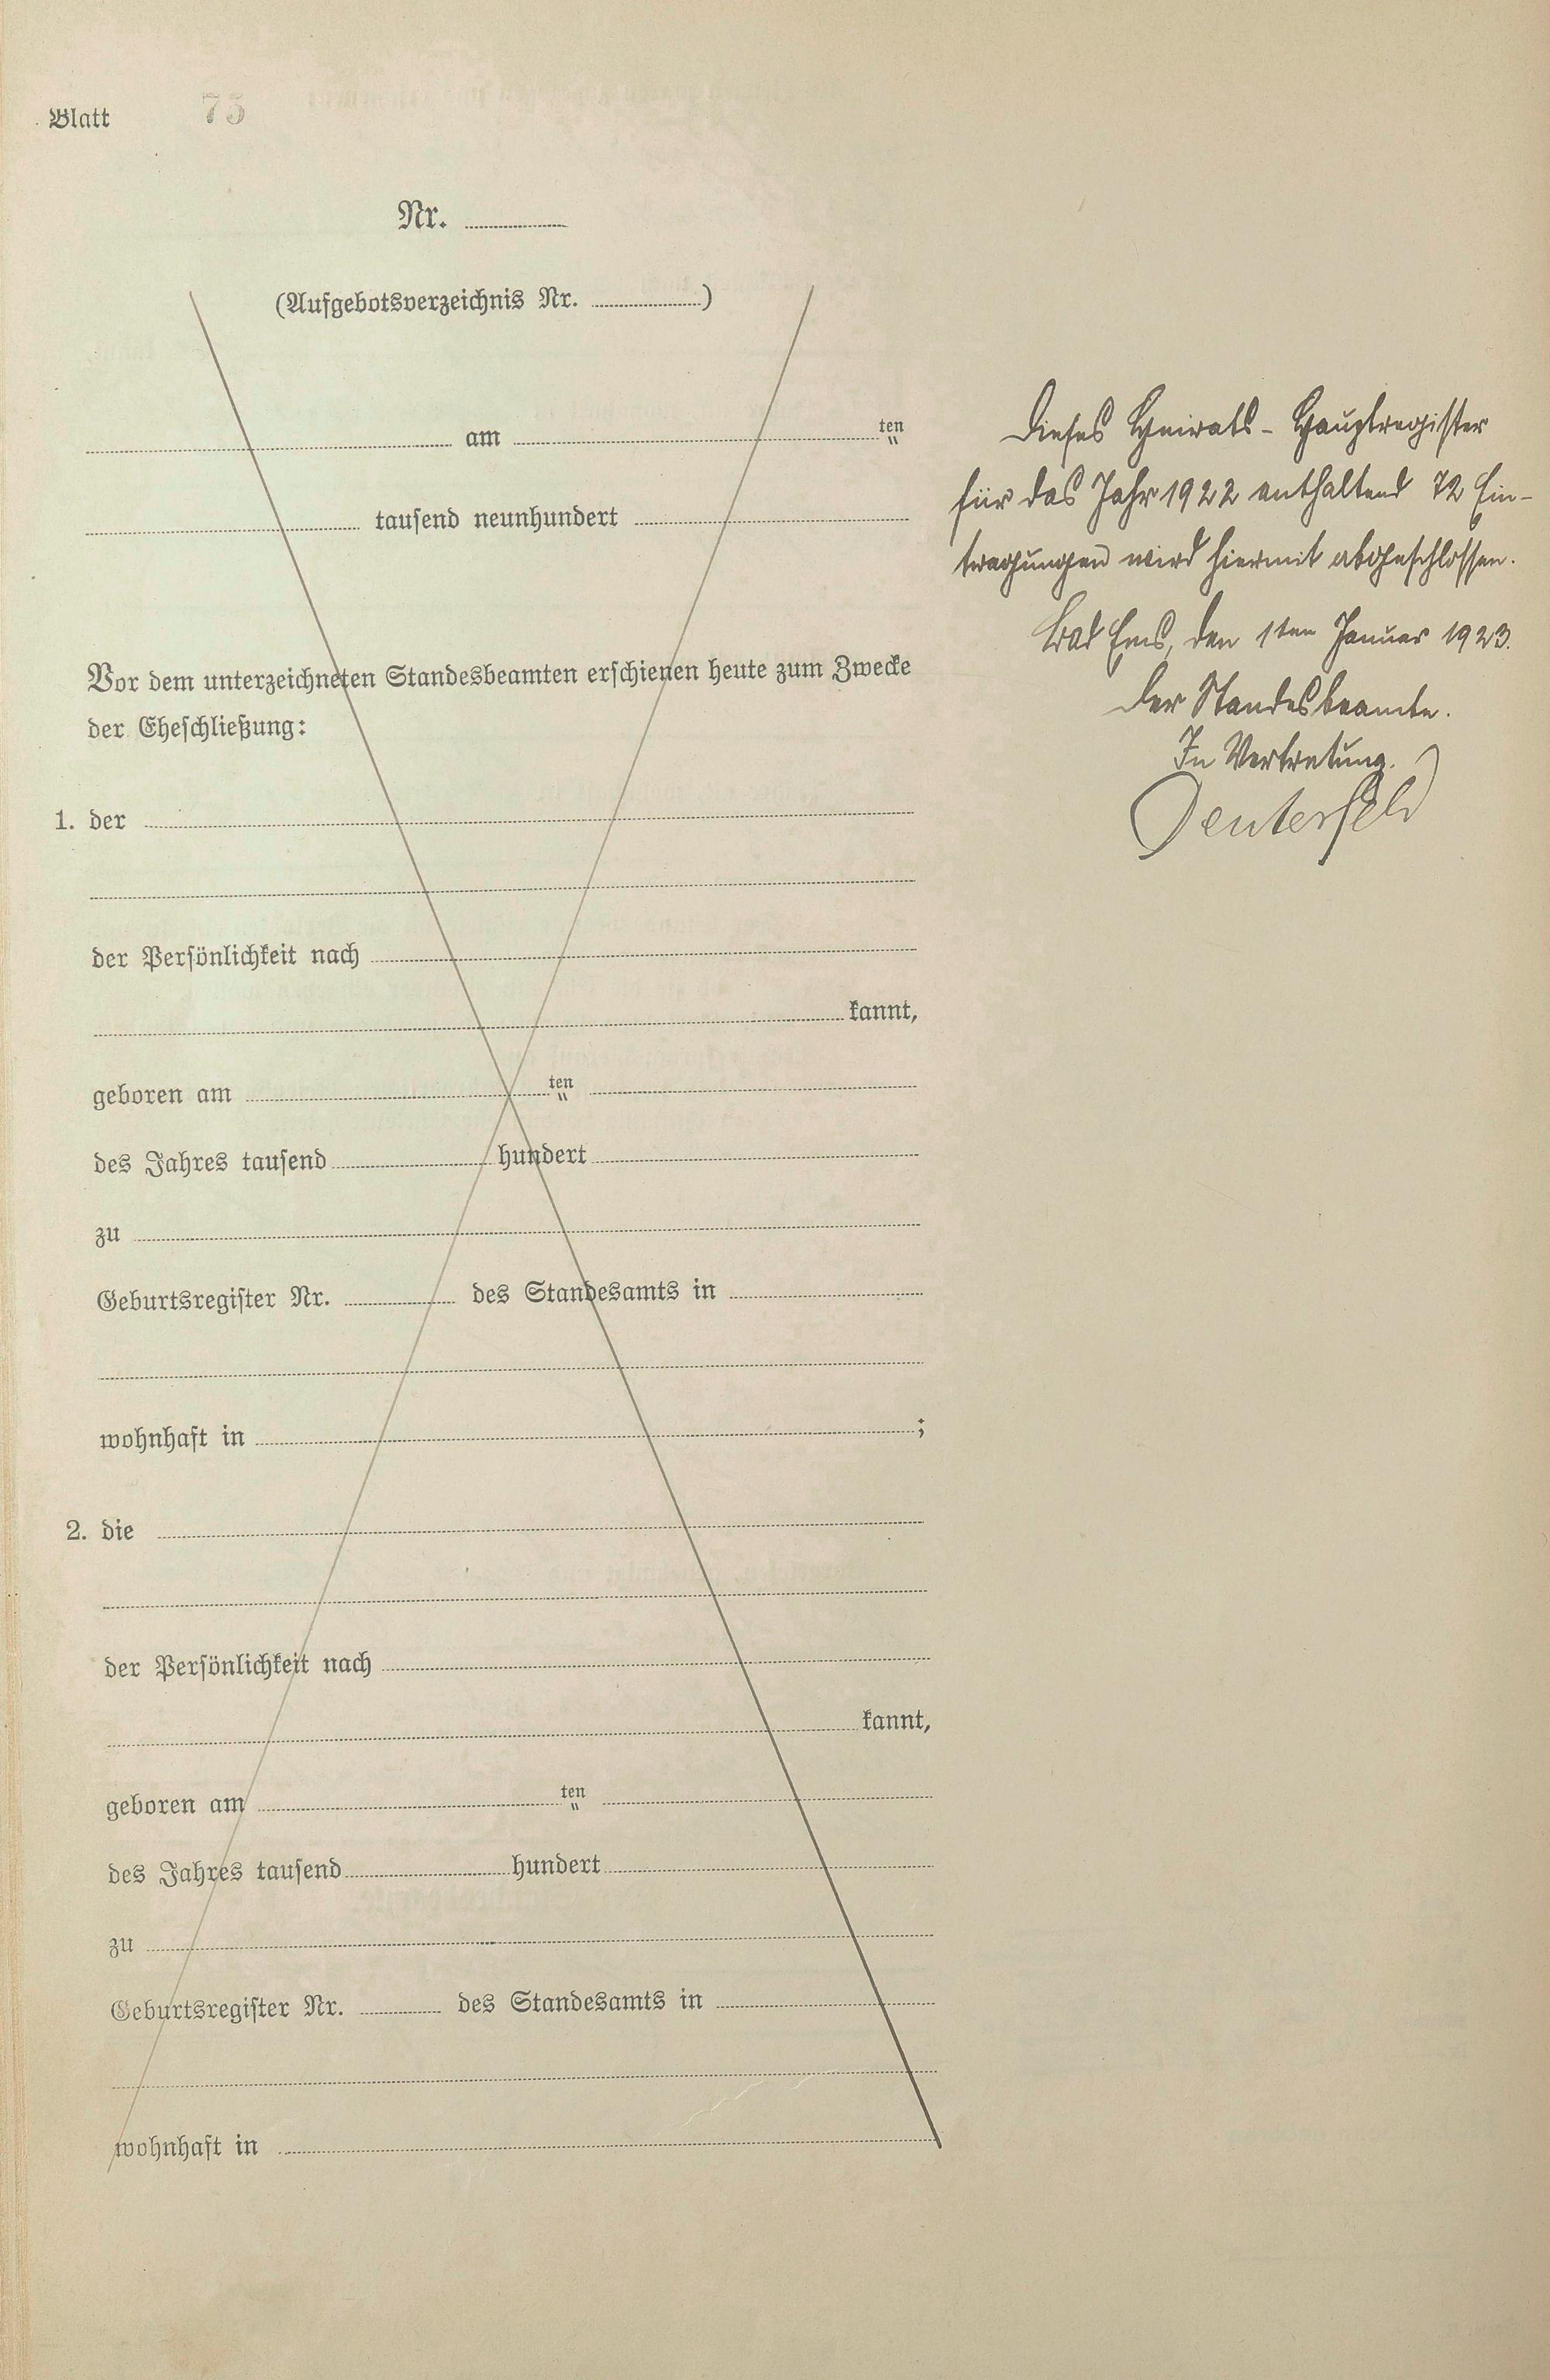 Blatt 75
Nr.
(Aufgebotsverzeichnis Nr. )
am ten
tausend neunhundert
Vor dem unterzeichneten Standesbeamten erschienen heute zum Zwecke
der Eheschließung:
1. der
der Persönlichkeit nach
kannt,
geboren am ten
des Jahres tausend hundert
zu
Geburtsregister Nr. des Standesamts in
wohnhaft in ;
2. die
der Persönlichkeit nach
kannt,
geboren am ten
des Jahres tausend hundert
zu
Geburtsregister Nr. des Standesamts in
wohnhaft in
Dieses Heirats-Hauptregister
für das Jahr 1922 enthaltend 72 Ein-
tragungen wird hiermit abgeschlossen.
Bad Ems, den 1ten Januar 1923.
Der Standesbeamte.
In Vertretung.